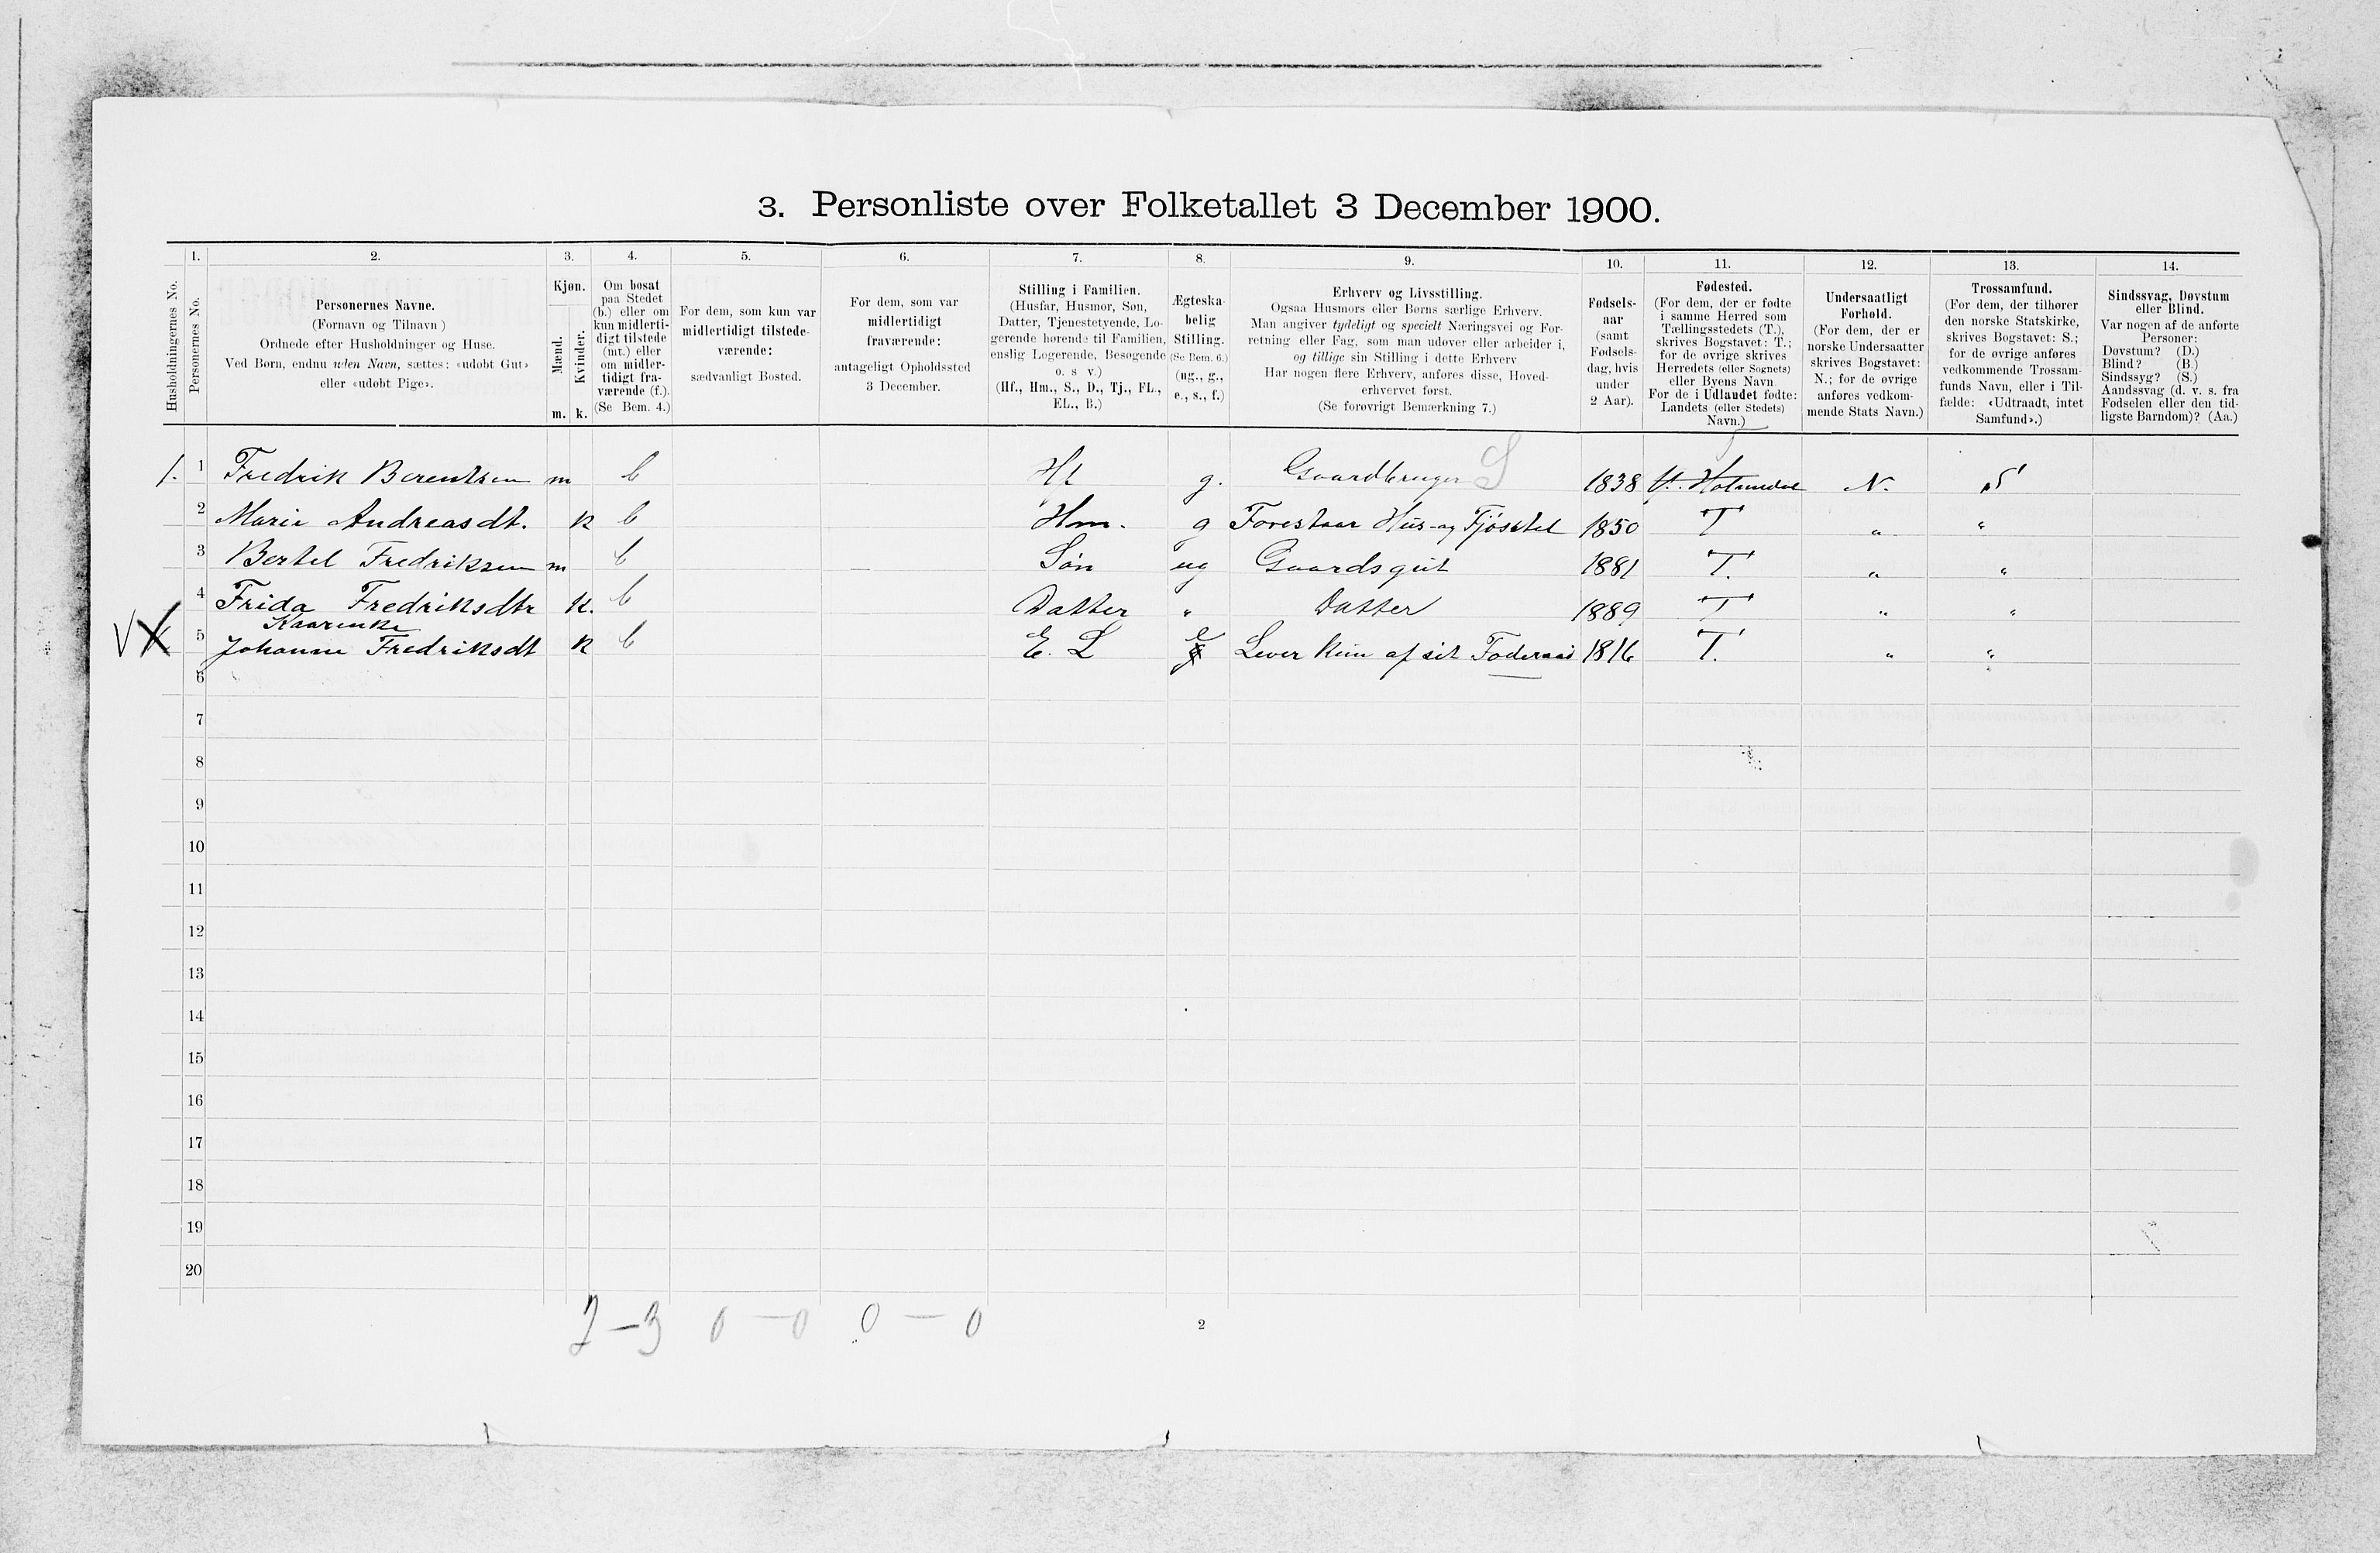 3. Personliste over Folketallet 3 December 1900.
Husholdningernes No.
1.
Personernes No.
2.
Personernes Navne.
(Fornavn og Tilnavn)
Ordnede efter Husholdninger og Huse.
Ved Børn, endnu uden Navn, sættes: «udøbt Gut»
eller «udøbt Pige».
3.
Kjøn.
Mænd.
Kvinder.
m. k.
4.
Om bosat
paa Stedet
(b.) eller om
kun midlerti-
digt tilstede
(mt.) eller
om midler-
tidigt fra-
værende (f.).
(Se Bem. 4.)
5.
For dem, som kun var
midlertidigt tilstede-
værende:
sædvanligt Bosted.
6.
For dem, som var
midlertidigt
fraværende:
antageligt Opholdssted
3 December.
7.
Stilling i Familien.
(Husfar, Husmor, Søn,
Datter, Tjenestetyende, Lo-
gerende hørende til Familien,
enslig Logerende, Besøgende
o. s. v.)
(Hf., Hm., S., D., Tj., FL.,
EL., B.)
8.
Ægteska-
belig
Stilling.
(Se Bem. 6.)
(ug., g.,
e., s., f.)
9.
Erhverv og Livsstilling.
Ogsaa Husmors eller Børns særlige Erhverv.
Man angiver tydeligt og specielt Næringsvei og For-
retning eller Fag, som man udøver eller arbeider i,
og tillige sin Stilling i dette Erhverv
Har nogen flere Erhverv, anføres disse, Hoved-
erhvervet først.
(Se forøvrigt Bemærkning 7.)
10.
Fødsels-
aar
(samt
Fødsels-
dag, hvis
under
2 Aar).
11.
Fødested.
(For dem, der er fødte
i samme Herred som
Tællingsstedets (T.),
skrives Bogstavet: T.;
for de øvrige skrives
Herredets (eller Sognets)
eller Byens Navn.
For de i Udlandet fødte:
Landets (eller Stedets)
Navn.)
12.
Undersaatligt
Forhold.
(For dem, der er
norske Undersaatter
skrives Bogstavet:
N.; for de øvrige
anføres vedkom-
mende Stats Navn.)
13.
Trossamfund.
(For dem, der tilhører
den norske Statskirke,
skrives Bogstavet: S.;
for de øvrige anføres
vedkommende Trossam-
funds Navn, eller i Til-
fælde: «Udtraadt, intet
Samfund».)
14.
Sindssvag, Døvstum
eller Blind.
Var nogen af de anførte
Personer:
Døvstum? (D.)
Blind? (B.)
Sindssyg? (S.)
Aandssvag (d. v. s. fra
Fødselen eller den tid-
ligste Barndom)? (Aa.)
1. 1 Fredrik Berentsen m b Hf g. Gaardbruger S 1838 N. S
2 Marie Andreasdt. k b Hm. g Forestaar Hus- og Fjøsstel 1850 T " "
3 Bertel Fredriksen m b Søn ug Gaardsgut 1881 T. " "
4 Frida Fredriksdtr k. b Datter " Datter 1889 T " "
Kaarenke
5 Johanne Fredriksdt k b E. L e Lever kun af sit Føderaad 1816 T. " "
6
7
8
9
10
11
12
13
14
15
16
17
18
19
20
2 – 3 0 – 0 0 – 0
2